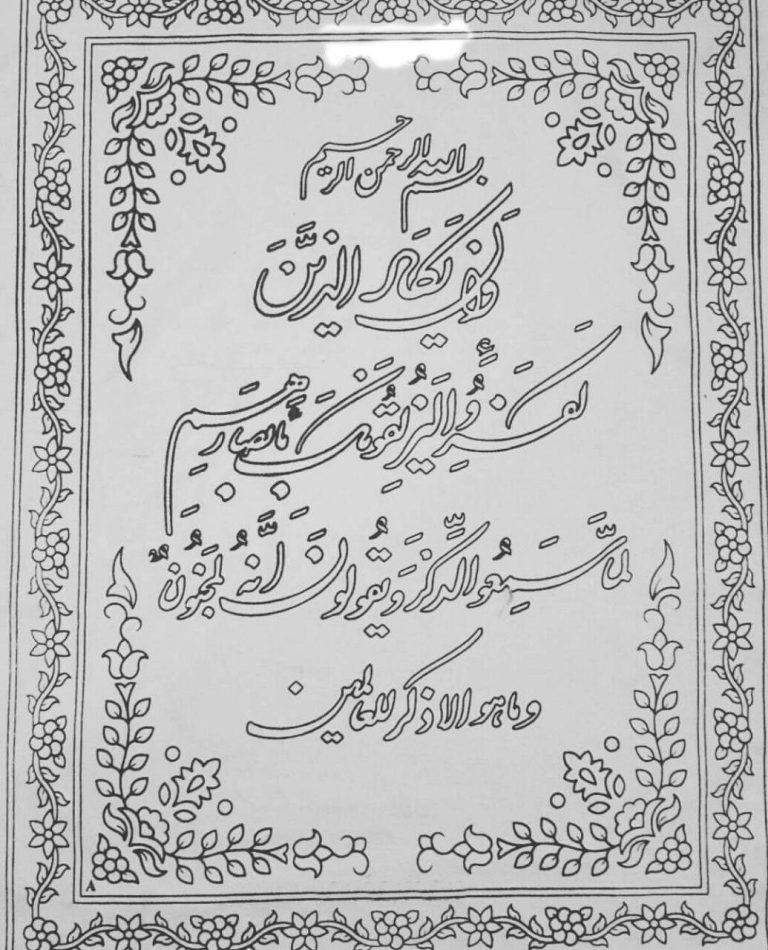 بسم الله الرحمن الرحيم
وَإِن يَكَادُ الَّذِينَ
كَفَرُوا لَيُزْلِقُونَكَ بِأَبْصَارِهِمْ
لَمَّا سَمِعُوا الذِّكْرَ وَيَقُولُونَ إِنَّهُ لَمَجْنُونٌ
وما هو الا ذكر للعالمين
A